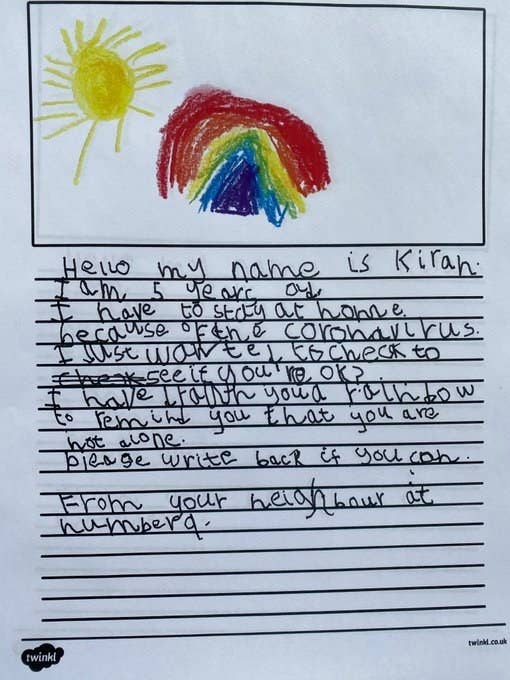 Hello my name is Kirah.
I am 5 years old
I have to stay at home.
because of the coronavirus.
I just wanted to check to
chek see if you're ok?
I have drawn you a rainbow
to remind you that you are
not alone.
please write back if you can.
From your neighbour at
number 9.
twinkl
twinkl.co.uk